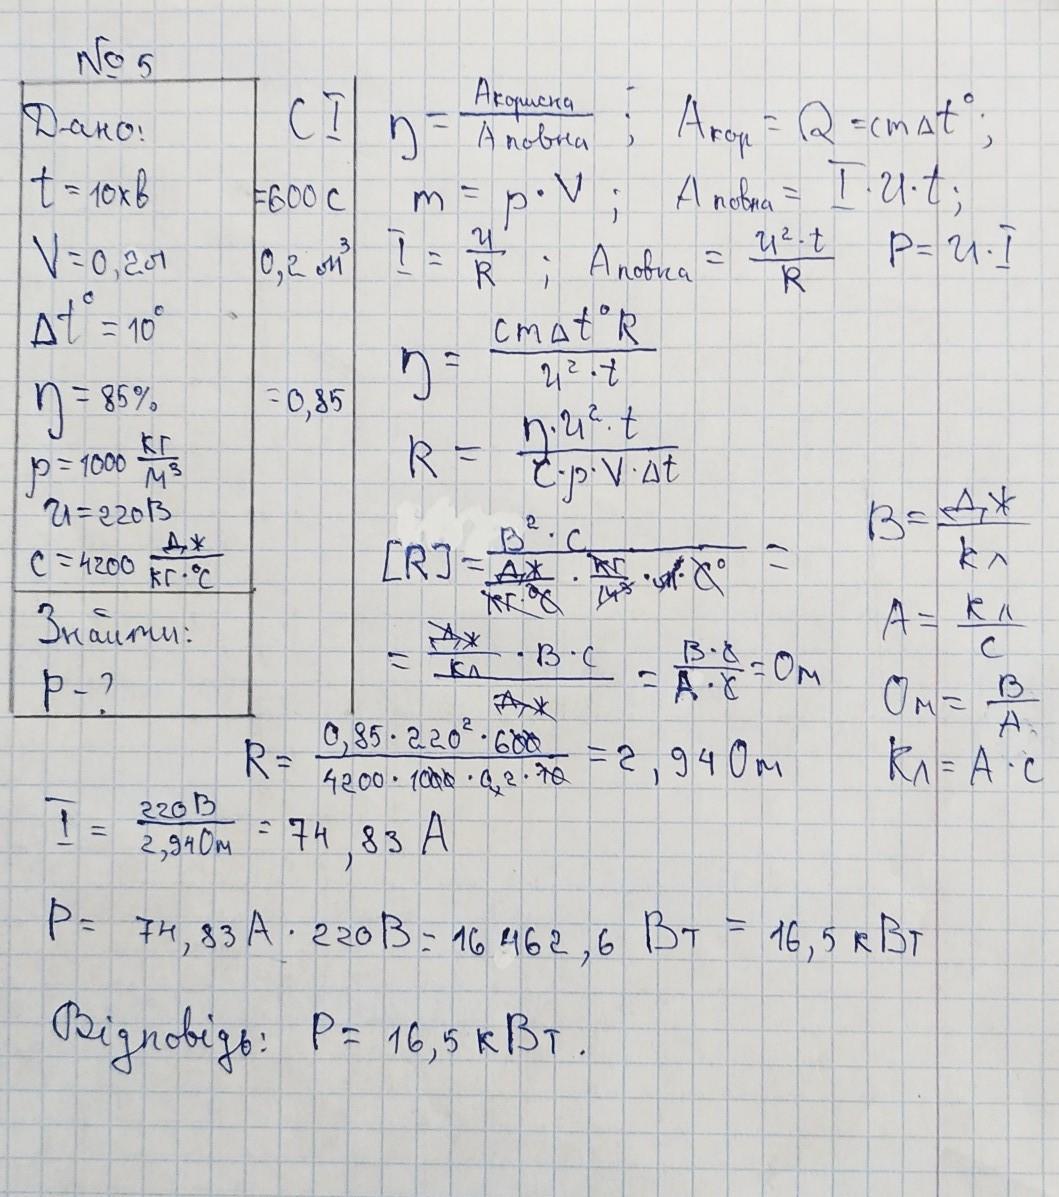 № 5
Дано:
t = 10хв
V = 0,2л
Δt° = 10°
η = 85%
ρ = 1000 кг/м³
U = 220В
c = 4200 Дж/кг·°С
Знайти:
P - ?
СІ
= 600 с
0,2 м³
= 0,85
η = Aкорисна/Aповна ; Aкор = Q = cmΔt° ;
m = ρ · V ; Aповна = I · U · t ;
I = U/R ; Aповна = U² · t/R P = U · I
η = cmΔt°R/U² · t
R = η · U² · t/c · ρ · V · Δt
[R] = В² · с/(Дж/кг·°С · кг/м³ · м³ · С°) =
= (Дж/Кл · В · с)/Дж = В · с/А · с = Ом
В = Дж/Кл
А = Кл/с
Ом = В/А
Кл = А · с
R = 0,85 · 220² · 600/4200 · 1000 · 0,2 · 10 = 2,94 Ом
I = 220В/2,94Ом = 74,83 А
P = 74,83А · 220В = 16462,6 Вт = 16,5 кВт
Відповідь: P = 16,5 кВт.